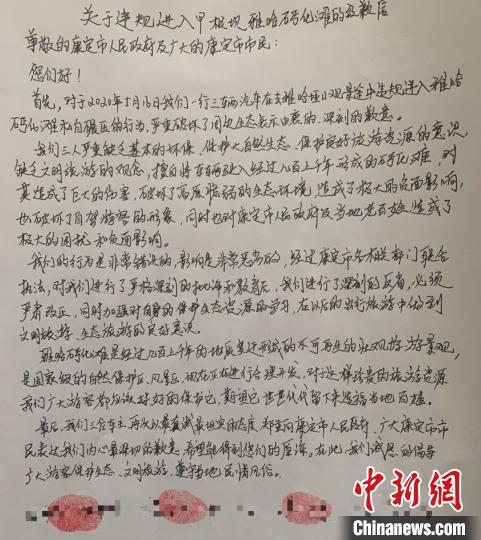 关于违规进入甲根坝雅哈钙化滩的致歉信
尊敬的康定市人民政府及广大的康定市市民：
您们好！
首先，对于2020年5月16日我们一行三辆汽车在去雅哈垭口观景途中违规进入雅哈
钙化滩私自碾压的行为，严重破坏了周边生态表示由衷的、深刻的歉意。
我们三人严重缺乏基本的环保、保护大自然生态、保护良好旅游资源的意识
缺乏文明旅游的观念，擅自将车辆驶入经过几百上千年形成的钙化滩，对
其造成了巨大的伤害，破坏了高原脆弱的生态环境，造成了极大的负面影响，
也破坏了自驾游客的形象，同时也对康定市人民政府及当地老百姓造成了
极大的困扰和负面影响。
我们的行为是非常错误的，影响是非常恶劣的，经过康定市各相关部门联合
执法，对我们进行了严格深刻的批评和教育，我们进行了深刻的反省，必须
严肃改正，同时加强对自身的保护生态资源的学习，在以后的出行旅游中做到
文明旅游、生态旅游的良好意识。
雅哈钙化滩是经过几百上千年的地质变迁形成的不可再生的壮观旅游景观，
是国家级的自然保护区、风景区，现在正在进行合理开发，对于这样珍贵的旅游资源
我们广大游客都应该好好的保护它，期望它世世代代留下来造福当地百姓。
最后，我们三位车主再次以最真诚最坦定的态度，郑重向康定市人民政府、广大康定市市
民表达我们内心最深切的歉意，希望能得到您们的原谅。在此，我们诚恳的倡导
广大游客保护生态、文明旅游，遵守当地民情风俗。
中新网
Chinanews.com